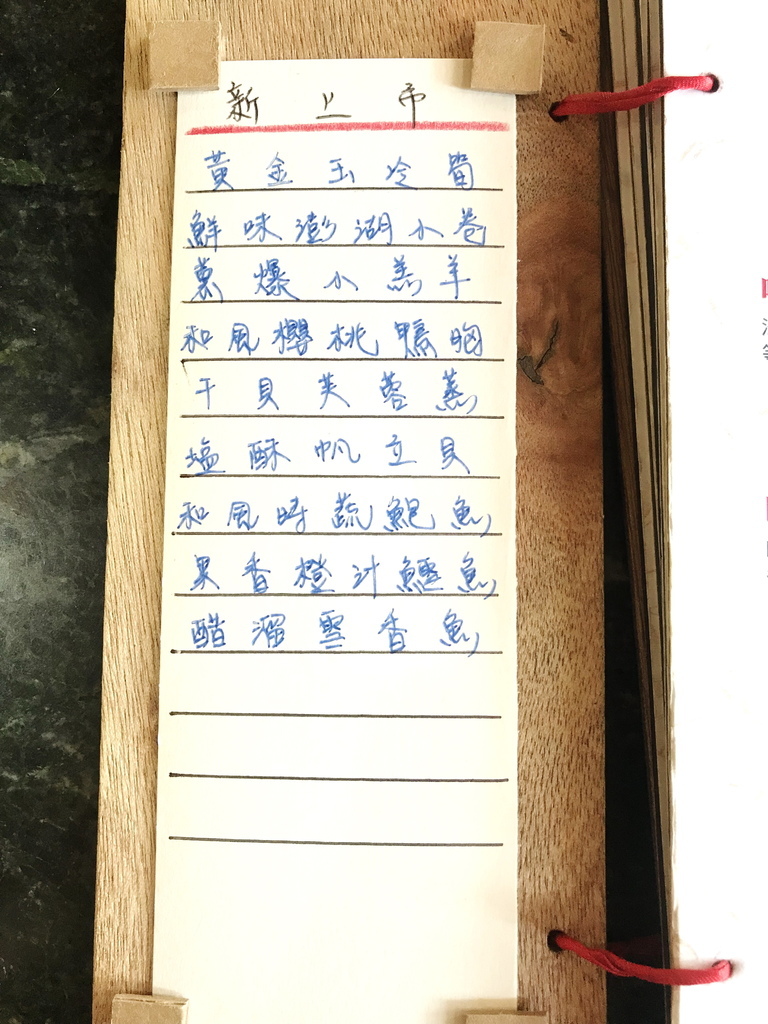 新上市
黃金玉冷筍
鮮味澎湖小卷
蔥爆小羔羊
和風櫻桃鴨胸
干貝芙蓉蒸
塩酥帆立貝
和風時蔬鮑魚
果香橙汁鱈魚
醋溜雪香魚